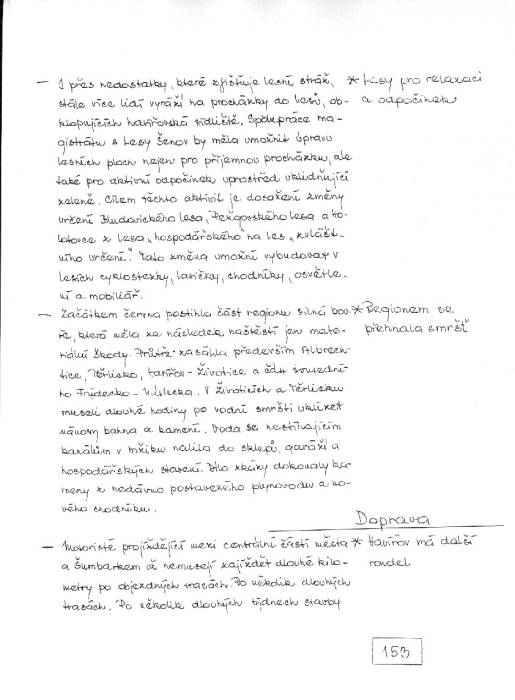 — I přes nedostatky, které zjišťuje lesní stráž, * Lesy pro relaxaci
stále více lidí vyráží na procházky do lesů, ob- a odpočinek
klopujících havířovská sídliště. Spolupráce ma-
gistrátu s Lesy Šenov by měla umožnit úpravu
lesních ploch nejen pro příjemnou procházku, ale
také pro aktivní odpočinek uprostřed uklidňující
zeleně. Cílem těchto aktivit je dosažení změny
určení Bludovického lesa, Pežgovského lesa a Ko-
latovce z lesa „hospodářského" na les „zvlášt-
ního určení." Tato změna umožní vybudovat v
lesích cyklostezky, lavičky, chodníky, osvětle-
ní a mobiliář.
— Začátkem června postihla část regionu silná bou- * Regionem se
ře, která měla za následek naštěstí jen mate- přehnala smršť
riální škody. Průtrž zasáhla především Albrech-
tice, Těrlicko, Havířov - Životice a část sousední-
ho Frýdecko - Místecka. V Životicích a Těrlicku
museli dlouhé hodiny po vodní smršti uklízet
nánosy bahna a kamení. Voda se nestíhajícím
kanálům v mžiku nalila do sklepů, garáží a
hospodářských stavení. Bílo zkázy dokonaly ka-
meny z nedávno postaveného plynovodu a no-
vého chodníku.
Doprava
— Motoristé projíždějící mezi centrální částí města * Havířov má další
a Šumbarkem už nemusejí zajíždět dlouhé kilo- rondel
metry po objezdných trasách. Po několik dlouhých
trasách. Po několik dlouhých týdnech stavby
153